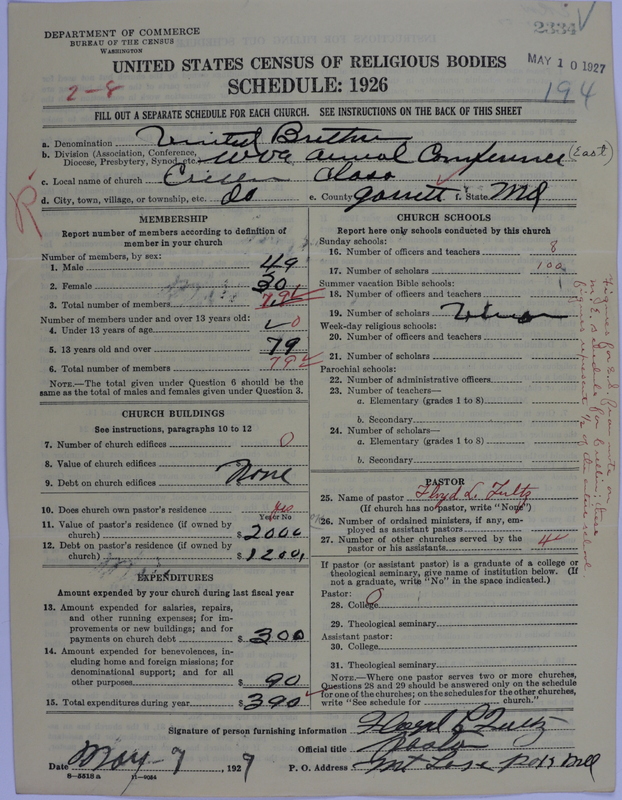 DEPARTMENT OF COMMERCE
BUREAU OF THE CENSUS
WASHINGTON
2334
MAY 10 1927
UNITED STATES CENSUS OF RELIGIOUS BODIES
SCHEDULE: 1926
2-8
194
FILL OUT A SEPARATE SCHEDULE FOR EACH CHURCH. SEE INSTRUCTIONS ON THE BACK OF THIS SHEET
a. Denomination United Brethren
b. Division (Association, Conference, Diocese, Presbytery, Synod, etc. W Va Annual Conference (East)
c. Local name of church Class
d. City, town, village, or township, etc. Do e. County Garrett f. State Md
R
MEMBERSHIP
Report number of members according to definition of
member in your church
Number of members, by sex:
1. Male 49
2. Female 30
3. Total number of members 79
Number of members under and over 13 years old:
4. Under 13 years of age 0
5. 13 years old and over 79
6. Total number of members 79
NOTE.—The total given under Question 6 should be
same as the total of males and females given under Question 3.
CHURCH BUILDINGS
See instructions, paragraphs 10 to 12
7. Number of church edifices 0
8. Value of church edifices
9. Debt on church edifices None
10. Does church own pastor's residence Yes
Yes or No
11. Value of pastor's residence (if owned by
church) $ 2000
12. Debt on pastor's residence (if owned by
church) $ 1200
EXPENDITURES
Amount expended by your church during last fiscal year
13. Amount expended for salaries, repairs,
and other running expenses; for im-
provements or new buildings; and for
payments on church debt $ 300
14. Amount expended for benevolences, in-
cluding home and foreign missions; for
denominational support; and for all
other purposes $ 90
15. Total expenditures during year $ 390
CHURCH SCHOOLS
Report here only schools conducted by this church
Sunday schools:
16. Number of officers and teachers 8
17. Number of scholars 100
Summer vacation Bible schools:
18. Number of officers and teachers
19. Number of scholars
Week-day religious schools:
20. Number of officers and teachers
21. Number of scholars
Parochial schools:
22. Number of administrative officers
23. Number of teachers—
a. Elementary (grades 1 to 8)
b. Secondary
24. Number of scholars—
a. Elementary (grades 1 to 8)
b. Secondary
PASTOR
25. Name of pastor Floyd L. Fultz
(If church has no pastor, write "None")
26. Number of ordained ministers, if any, em-
ployed as assistant pastors
27. Number of other churches served by the
pastor or his assistants 4
If pastor (or assistant pastor) is a graduate of a college or
theological seminary, give name of institution below. (If
not a graduate, write "No" in the space indicated.)
Pastor:
28. College 0
29. Theological seminary
Assistant pastor:
30. College
31. Theological seminary
NOTE.—Where one pastor serves two or more churches,
Questions 28 and 29 should be answered only on the schedule
for one of the churches; on the schedules for the other churches,
write "See schedule for church."
Signature of person furnishing information Floyd L Fultz
Official title Pastor
Date May-7 1927 P. O. Address Md
8-5518 a 11-9054